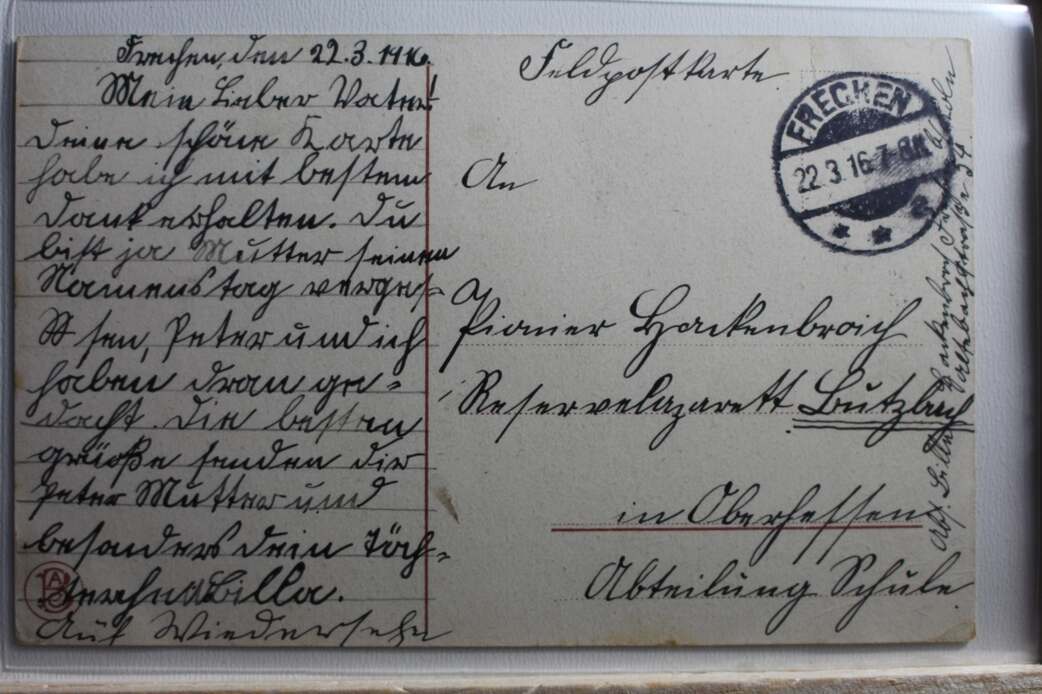 Frechen, den 22.3.1916.
Mein Lieber Vater!
Deine schöne Karte
habe ich mit bestem
Dank erhalten. Du
bist ja Mutter seinen
Namenstag verges-
sen, Peter und ich
haben dran ge-
dacht. Die besten
grüße senden dir
Peter Mutter und
besonders dein Töch-
terchen Billa.
Auf Wiedersehn
Feldpostkarte
FRECHEN
22.3.16.7-8N
* * 2
An
Pionier Hackenbroich
Reservelazarett Butzbach
in Oberhessen
Abteilung Schule
Abs. Billa Hackenbroich